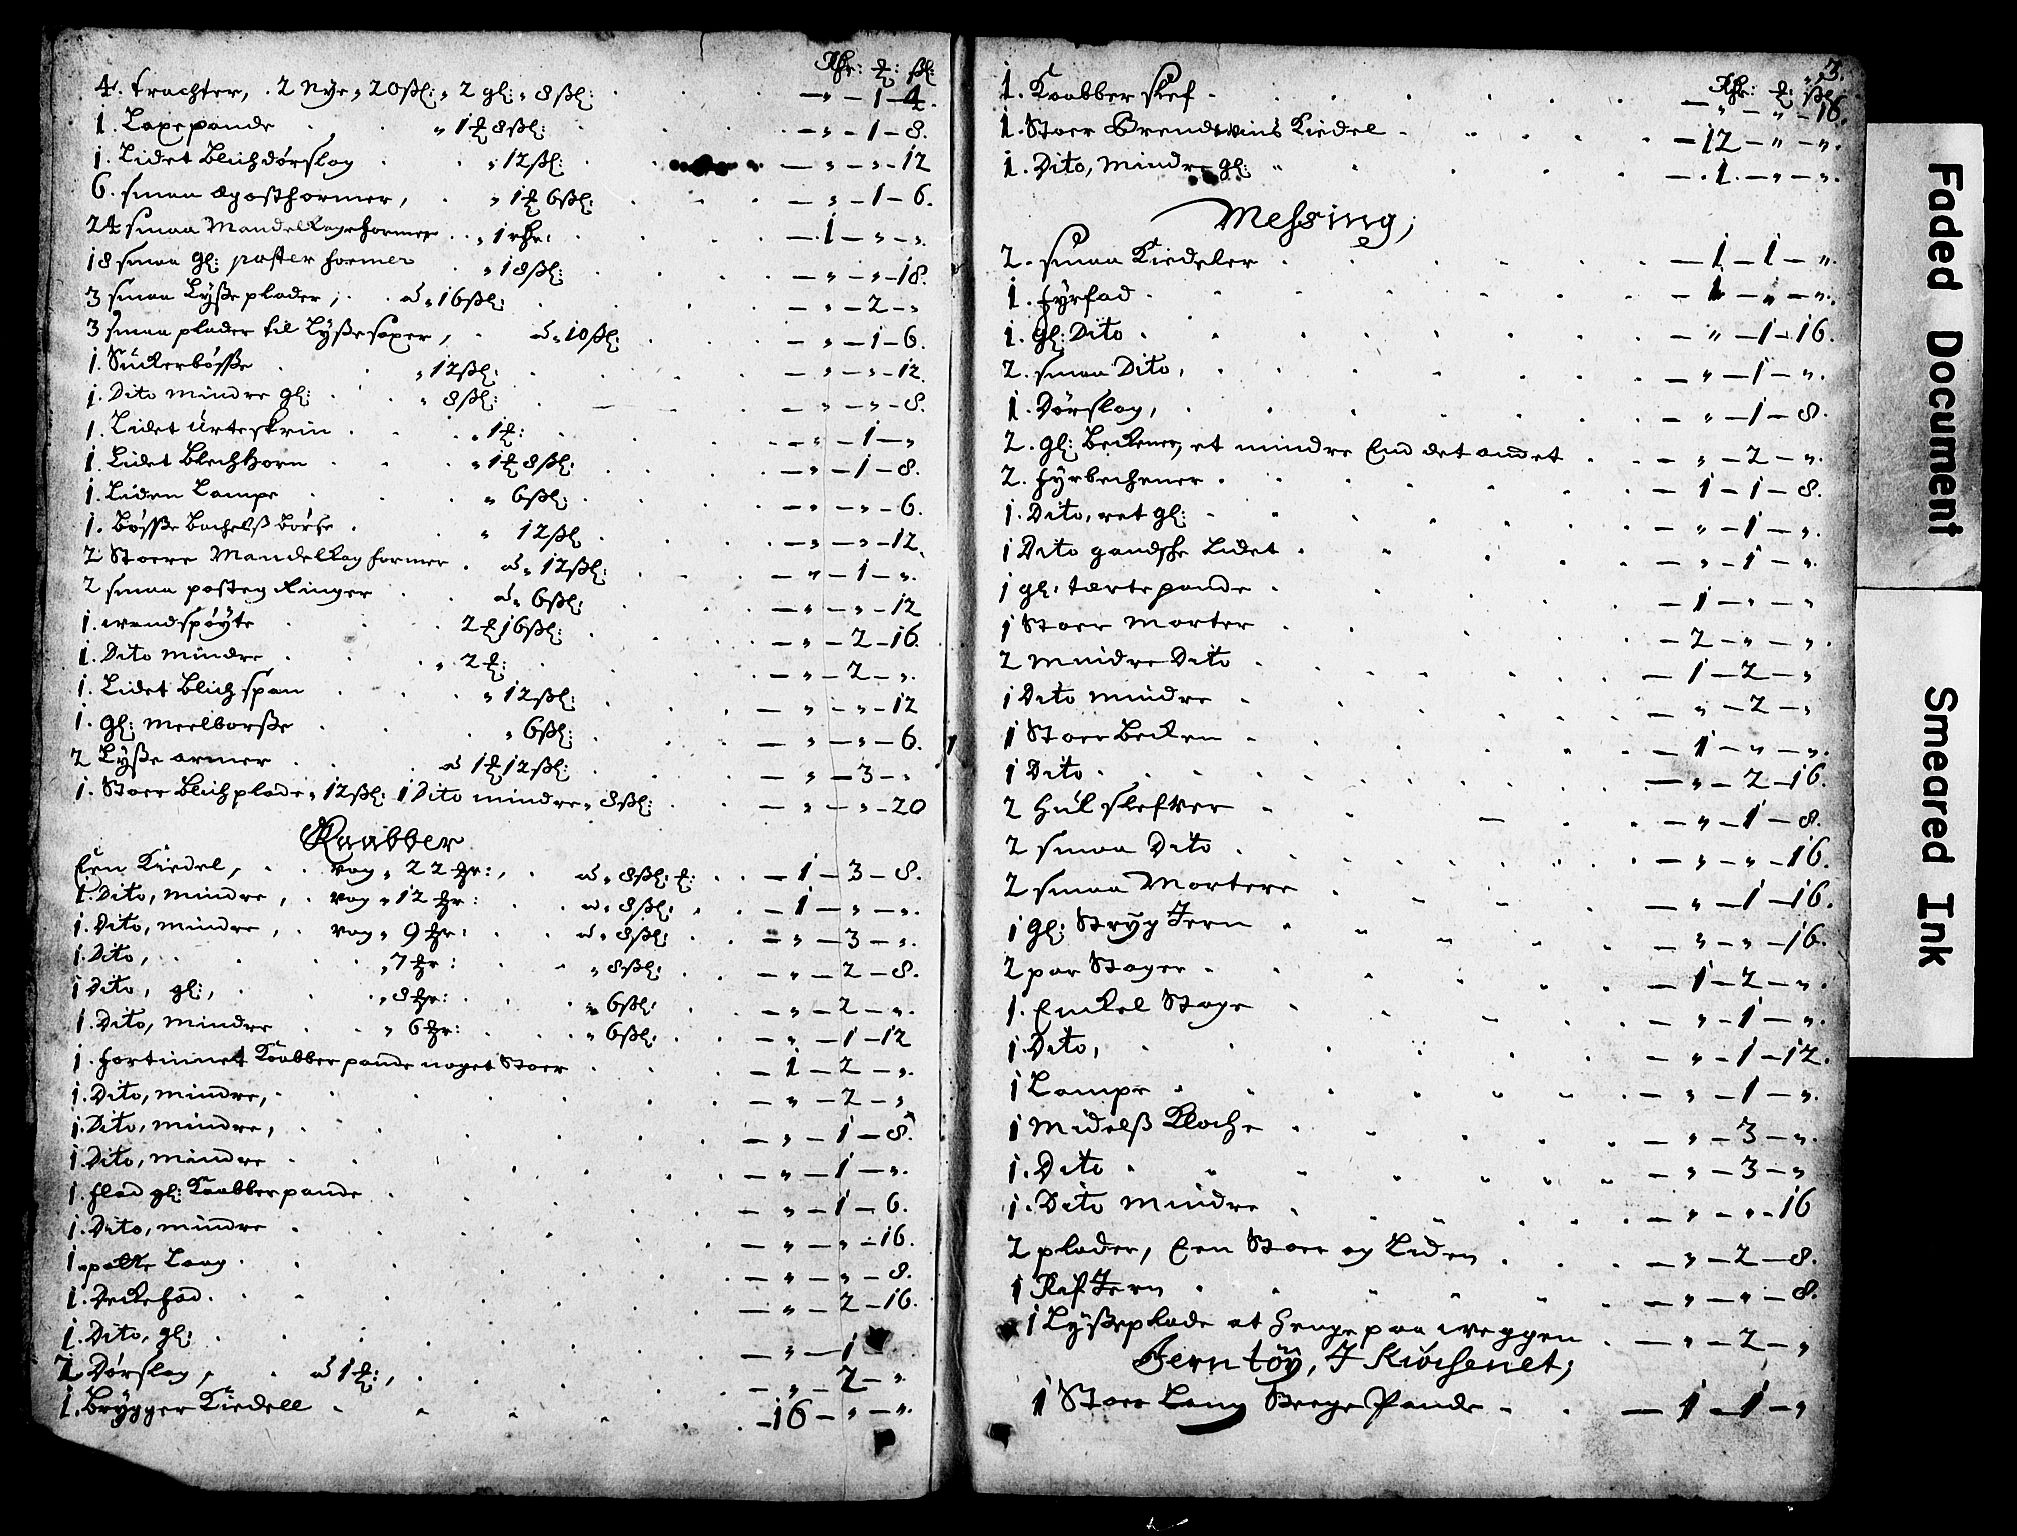 Rhr: ℔: ßl:
4. trachter, . 2 Nye „ 20 ßl: „ 2 gl: „ 8 ßl: — „ — 1 — 4.
1. Laxepande „ 1 ℔ 8 ßl: — „ — 1 — 8.
1. Lidet Blichdørslag „ 12 ßl: — „ — „ — 12
6. smaa Eposthormer, „ 1 ℔ 6 ßl: — „ — 1 — 6.
24 smaa Mandelkageformer „ 1 rhr: — 1 — „ — „
18 smaa gl: posteг former „ 18 ßl: — „ — „ — 18.
3 smaa Lyße plader, á „ 16 ßl: — „ — 2 — „
3 smaa plader til Lyßesaxer, á „ 10 ßl: — „ — 1 — 6.
1. Sückerbøsße „ 12 ßl: — „ — „ — 12.
1. Dito mindre gl: „ 8 ßl: — „ — „ — 8.
1. Lidet Urteskrin „ 1 ℔: — „ — 1 — „
1. Lidet Blechhorn „ 1 ℔ 8 ßl: — „ — 1 — 8.
1. Liden Lampe „ 6 ßl: — „ — „ — 6.
1. Bøsße „ 12 ßl: — „ — „ — 12.
2 Stoere Mandelkag former á „ 12 ßl: — „ — 1 — „
2 smaa posteg Ringer á „ 6 ßl: — „ — „ — 12
1. wandspøyte 2 ℔ 16 ßl: — „ — 2 — 16.
1. Dito mindre „ 2 ℔: — „ — 2 — „
1. Lidet Blichspan „ 12 ßl: — „ — „ — 12
1. gl: meelborße „ 6 ßl: — „ — „ — 6.
2 Lyße armer á 1 ℔ 12 ßl: — „ — 3 — „
1. Stoer Blichplade „ 12 ßl: 1 Dito mindre „ 8 ßl: — „ — „ — 20
Kaabber
Een Kiedel, vog „ 22 ℔r:, á „ 8 ßl: ℔: — 1 — 3 — 8.
1. Dito, mindre, vog „ 12 ℔r: á „ 8 ßl: — 1 — „ — „
1. Dito, mindre, vog „ 9 ℔r: á „ 8 ßl: — „ — 3 — „
1. Dito, „ 7 ℔r: „ 8 ßl: — „ — 2 — 8.
1 Dito, gl:, „ 8 ℔r: „ 6 ßl: — „ — 2 — „
1. Dito, mindre „ 6 ℔r: „ 6 ßl: — „ — 1 — 12
1. fortinnet Kaabber pande noget Stoer — 1 — 2 — „
1. Dito, mindre, — „ — 2 — „
1. Dito, mindre, — „ — 1 — 8.
1. Dito, mindre — „ — 1 — „
1. flad gl: Kaabberpande — „ — 1 — 6.
1. Dito, mindre — „ — „ — 16.
1. Laag — „ — „ — 8.
1. Deckefad. — „ — 2 — 16.
1. Dito, gl: — „ — 1
2. Dørslag, á 1 ℔:, — „ — 2 — „
1. Brygger Kiedell — 16 — „ — „
3.
Rhr: ℔: ßl:
1. Kaabber slef — „ — „ — 18.
1. Stoer Brendwins Kiedel — 12 — „ — „
1. Dito, mindre gl: — 1 — „ — „
Messing,
2. smaa Kiedeler — 1 — 1 — „
1. fyrfad — 1 — „ — „
1. gl: Dito — „ — 1 — 16.
2. smaa Dito, — „ — 1 — „
1. Dørslag, — „ — 1 — 8.
2. gl: Beckener, et mindre End det andet — „ — 2 — „
2. fyrbechener — 1 — 1 — 8.
1. Dito, ret gl: — „ — 1 — „
1 Dito gandshe Lidet — „ — 1 — „
1 gl: tærtepande — 1 — „ — „
1 Stoer morter — 2 — „ — „
2 mindre Dito — 1 — 2 — „
1 Dito mindre — „ — 2 — „
1 Stoer Becken — 1 — „ — „
1 Dito — „ — 2 — 16.
2 Hul slefver — „ — 1 — 8.
2 smaa Dito — „ — „ — 16.
2 smaa Mortere — „ — 1 — 16.
1 gl: Stryg Jern — „ — „ — 16.
2 par Stager — 1 — 2 — „
1. Enckel Stage — „ — 1 — „
1 Dito, — „ — 1 — 12.
1 Lampe — „ — 1 — „
1 Midelß Kloche — „ — 3 — „
1. Dito — „ — 3 — „
1. Dito mindre — „ — „ — 16
2 plader, Een Stoer og Liden — „ — 2 — 8.
1 Rif Jern — „ — „ — 8.
1 Lyßeplade at henge paa weggen — „ — 2 — „
Jern tøÿ, J Kiøchenet;
1 Stoer Lang Stege Pande — 1 — 1 — „
Faded Document
Smeared Ink